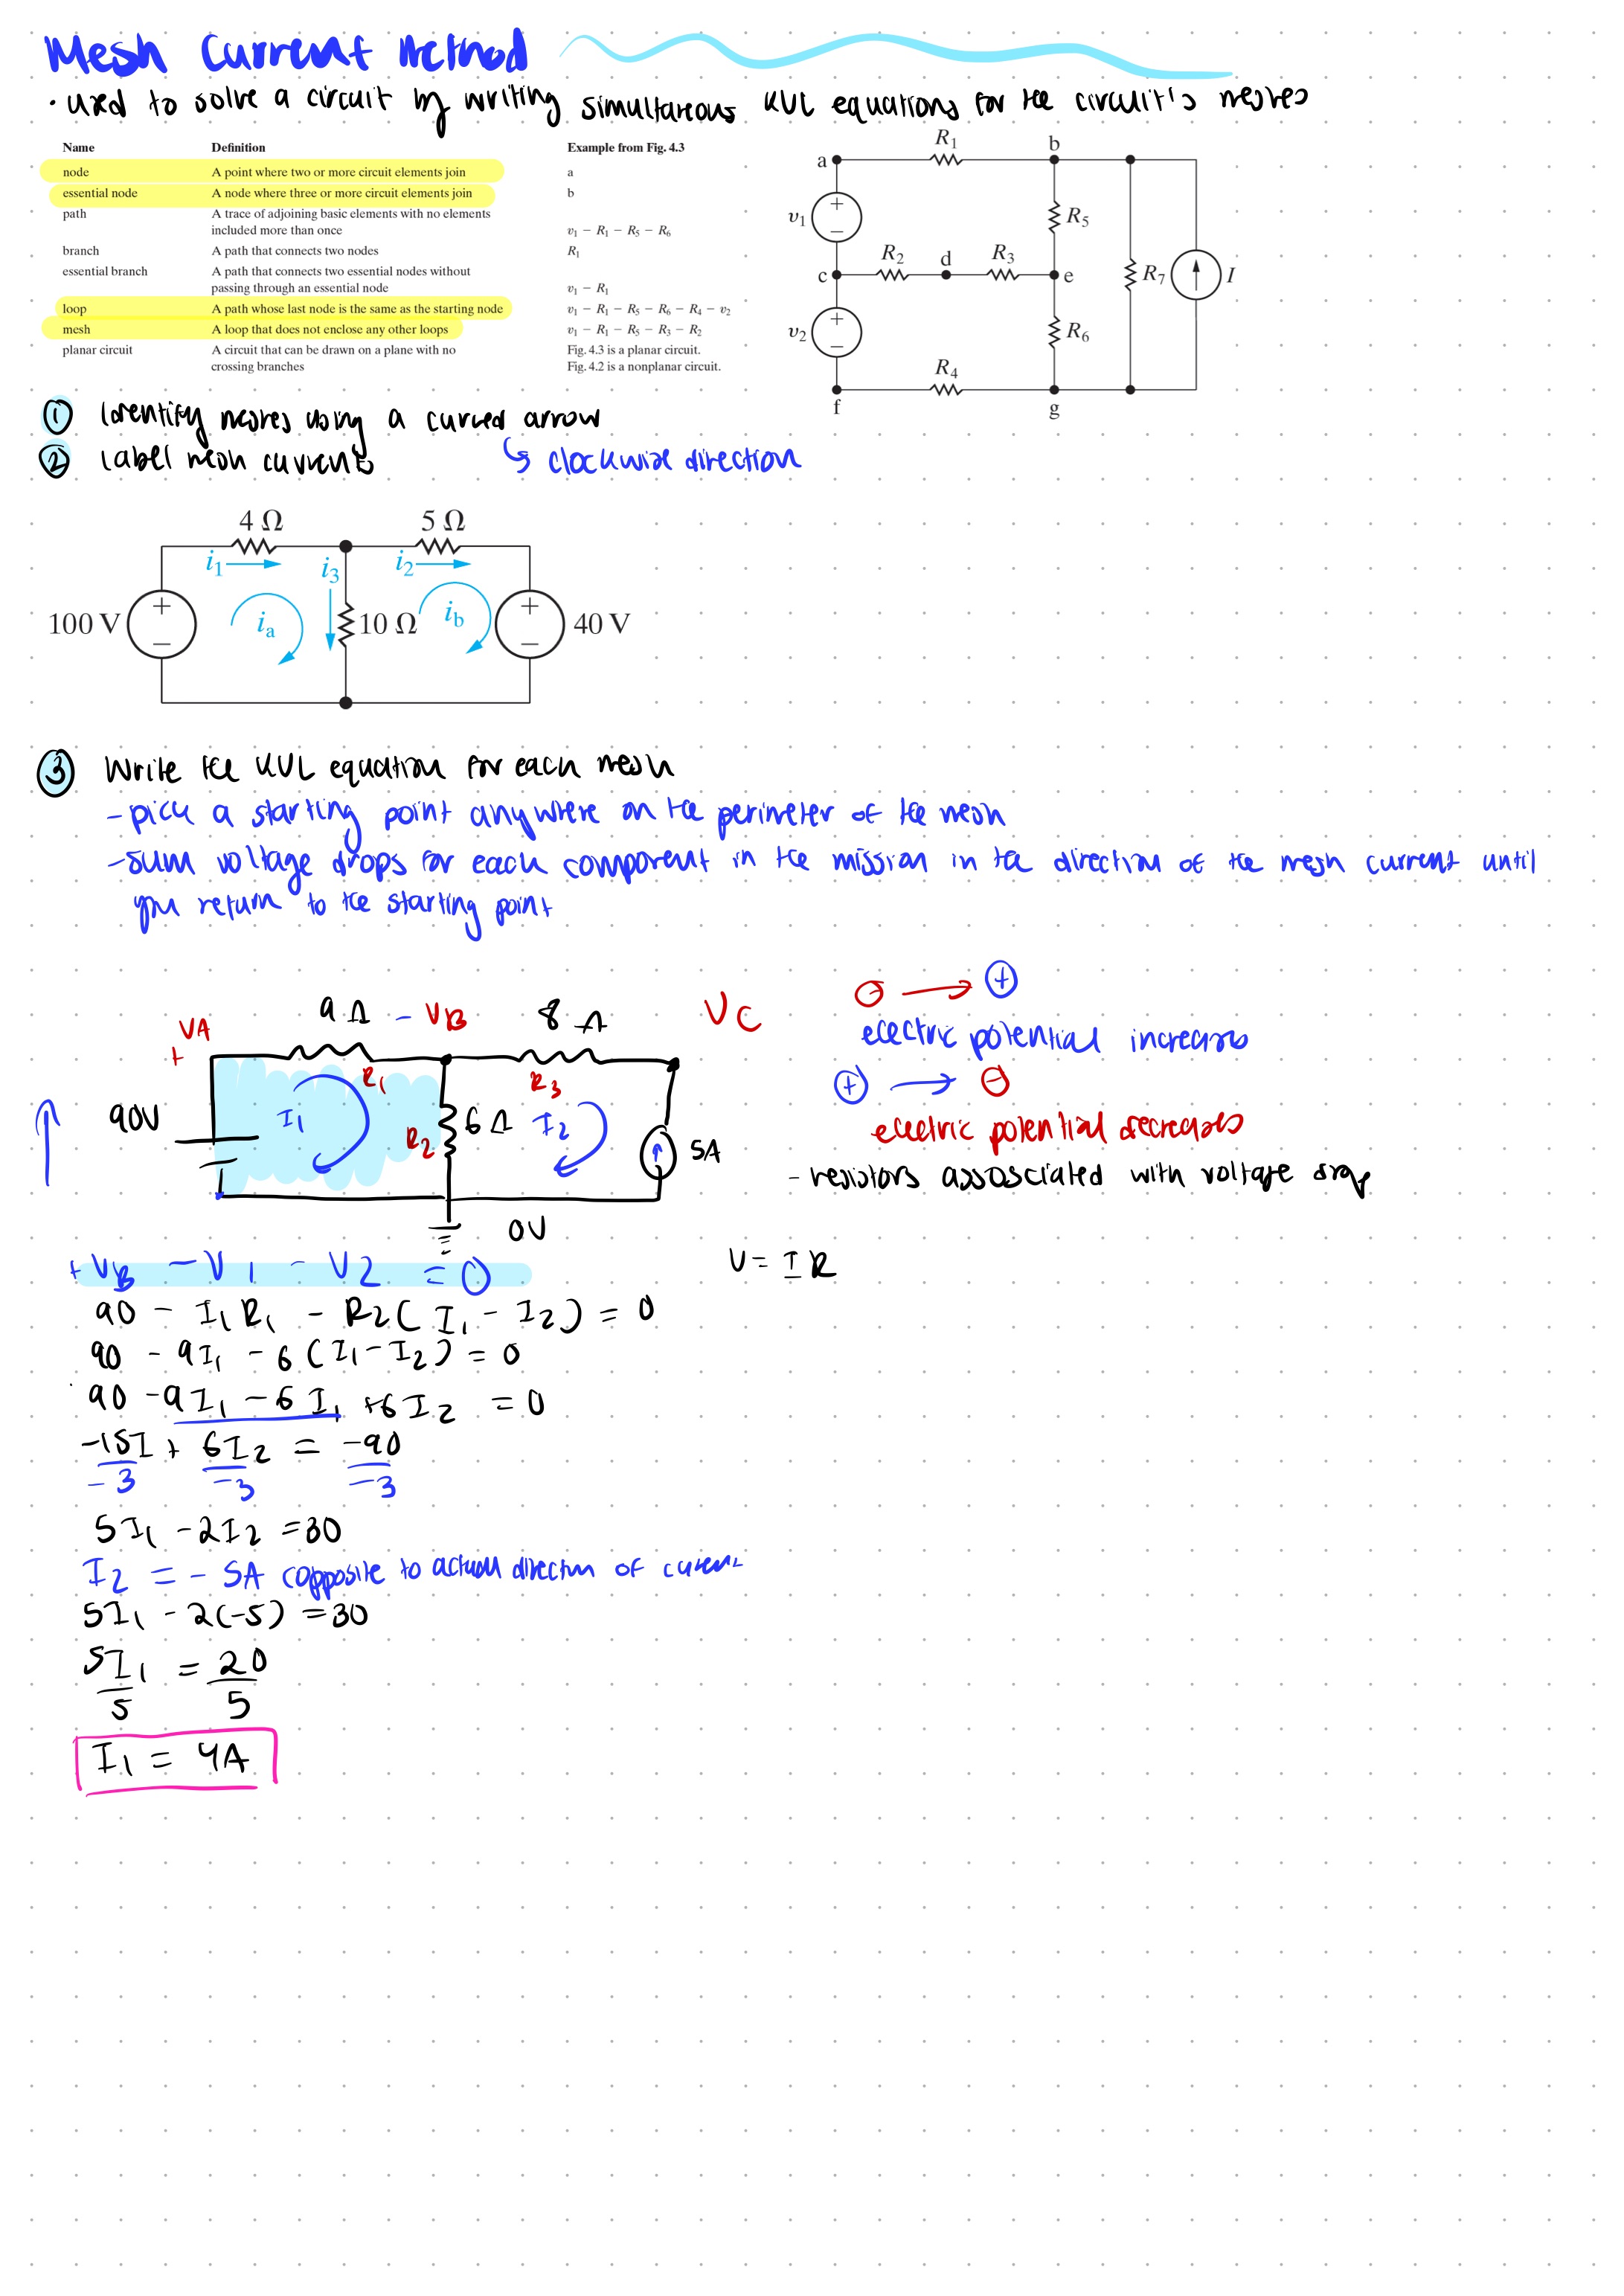 Mesh Current Method
• used to solve a circuit by writing simultaneous KVL equations for the circuit's meshes
Name Definition Example from Fig. 4.3
node A point where two or more circuit elements join a
essential node A node where three or more circuit elements join b
path A trace of adjoining basic elements with no elements
included more than once v₁ − R₁ − R₅ − R₆
branch A path that connects two nodes R₁
essential branch A path that connects two essential nodes without
passing through an essential node v₁ − R₁
loop A path whose last node is the same as the starting node v₁ − R₁ − R₅ − R₆ − R₄ − v₂
mesh A loop that does not enclose any other loops v₁ − R₁ − R₅ − R₃ − R₂
planar circuit A circuit that can be drawn on a plane with no Fig. 4.3 is a planar circuit.
crossing branches Fig. 4.2 is a nonplanar circuit.
a R₁ b
v₁ + − R₅
R₂ d R₃
c e R₇ I
v₂ + − R₆
R₄
f g
① Identify meshes using a curved arrow
② Label mesh currents ↳ clockwise direction
4 Ω 5 Ω
i₁ i₃ i₂
100 V + − iₐ 10 Ω i_b + − 40 V
③ Write the KVL equation for each mesh
- pick a starting point anywhere on the perimeter of the mesh
- sum voltage drops for each component in the mission in the direction of the mesh current until
you return to the starting point
⊖ → ⊕
electric potential increases
⊕ → ⊖
electric potential decreases
- resistors assosciated with voltage drop
VA 9 Ω - VB 8 Ω VC
+ R₁ R₃
90V I₁ R₂ 6 Ω I₂ 5A
0V
+ VB - V1 - V2 = 0
V = IR
90 - I₁R₁ - R₂(I₁ - I₂) = 0
90 - 9I₁ - 6(I₁ - I₂) = 0
90 - 9I₁ - 6I₁ + 6I₂ = 0
-15I + 6I₂ = -90
-3 -3 -3
5I₁ - 2I₂ = 30
I₂ = - 5A (opposite to actual direction of current
5I₁ - 2(-5) = 30
5I₁ = 20
5 5
I₁ = 4A